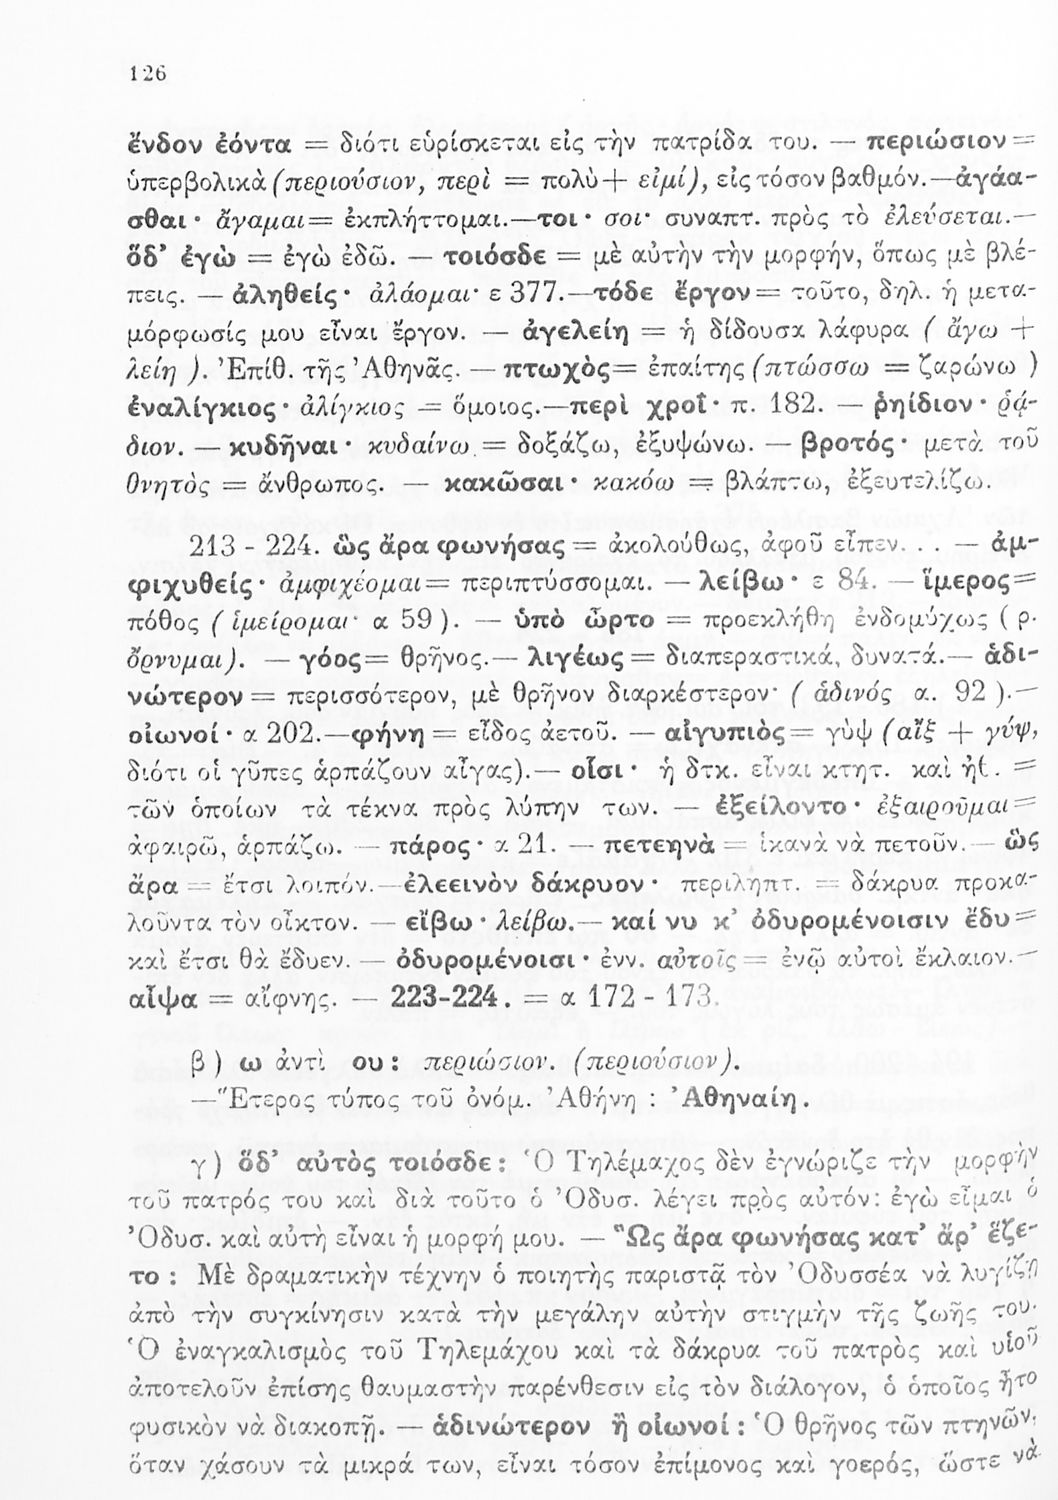 126
ἔνδον ἐόντα = διότι εὑρίσκεται εἰς τὴν πατρίδα του. — περιώσιον =
ὑπερβολικὰ (περιούσιον, περὶ = πολὺ + εἰμί), εἰς τόσον βαθμόν.—ἀγάα-
σθαι · ἄγαμαι = ἐκπλήττομαι.—τοι · σοι· συναπτ. πρὸς τὸ ἐλεύσεται.—
ὅδ’ ἐγὼ = ἐγὼ ἐδῶ. — τοιόσδε = μὲ αὐτὴν τὴν μορφήν, ὅπως μὲ βλέ-
πεις. — ἀληθείς · ἀλάομαι· ε 377.—τόδε ἔργον = τοῦτο, δηλ. ἡ μετα-
μόρφωσίς μου εἶναι ἔργον. — ἀγελείη = ἡ δίδουσα λάφυρα ( ἄγω +
λείη ). Ἐπίθ. τῆς Ἀθηνᾶς. — πτωχὸς = ἐπαίτης (πτώσσω = ζαρώνω )
ἐναλίγκιος · ἀλίγκιος = ὅμοιος.—περὶ χροΐ · π. 182. — ῥηίδιον · ῥᾴ-
διον. — κυδῆναι · κυδαίνω = δοξάζω, ἐξυψώνω. — βροτός · μετὰ τοῦ
θνητὸς = ἄνθρωπος. — κακῶσαι · κακόω = βλάπτω, ἐξευτελίζω.
213 - 224. ὣς ἄρα φωνήσας = ἀκολούθως, ἀφοῦ εἶπεν. . . — ἀμ-
φιχυθείς · ἀμφιχέομαι = περιπτύσσομαι. — λείβω · ε 84. — ἵμερος =
πόθος ( ἱμείρομαι · α 59 ). — ὑπὸ ὦρτο = προεκλήθη ἐνδομύχως ( ρ.
ὄρνυμαι). — γόος = θρῆνος.— λιγέως = διαπεραστικά, δυνατά.— ἁδι-
νώτερον = περισσότερον, μὲ θρῆνον διαρκέστερον· ( ἁδινός α. 92 ).—
οἰωνοί · α 202.—φήνη = εἶδος ἀετοῦ. — αἰγυπιὸς = γὺψ (αἲξ + γύψ,
διότι οἱ γῦπες ἁρπάζουν αἶγας).— οἷσι · ἡ δτκ. εἶναι κτητ. καὶ ἠθ. =
τῶν ὁποίων τὰ τέκνα πρὸς λύπην των. — ἐξείλοντο · ἐξαιροῦμαι =
ἀφαιρῶ, ἁρπάζω. — πάρος · α 21. — πετεηνὰ = ἱκανὰ νὰ πετοῦν. — ὣς
ἄρα = ἔτσι λοιπόν.—ἐλεεινὸν δάκρυον · περιληπτ. = δάκρυα προκα-
λοῦντα τὸν οἶκτον. — εἴβω · λείβω.— καί νυ κ’ ὀδυρομένοισιν ἔδυ =
καὶ ἔτσι θὰ ἔδυεν. — ὀδυρομένοισι · ἐνν. αὐτοῖς = ἐνῷ αὐτοὶ ἔκλαιον.—
αἶψα = αἴφνης. — 223-224. = α 172 - 173.
β ) ω ἀντὶ ου : περιώσιον. (περιούσιον).
—Ἕτερος τύπος τοῦ ὀνόμ. Ἀθήνη : Ἀθηναίη.
γ ) ὅδ’ αὐτὸς τοιόσδε : Ὁ Τηλέμαχος δὲν ἐγνώριζε τὴν μορφὴν
τοῦ πατρός του καὶ διὰ τοῦτο ὁ Ὀδυσ. λέγει πρὸς αὐτόν: ἐγὼ εἶμαι ὁ
Ὀδυσ. καὶ αὐτὴ εἶναι ἡ μορφή μου. — Ὣς ἄρα φωνήσας κατ’ ἄρ’ ἕζε-
το : Μὲ δραματικὴν τέχνην ὁ ποιητὴς παριστᾷ τὸν Ὀδυσσέα νὰ λυγίζῃ
ἀπὸ τὴν συγκίνησιν κατὰ τὴν μεγάλην αὐτὴν στιγμὴν τῆς ζωῆς του.
Ὁ ἐναγκαλισμὸς τοῦ Τηλεμάχου καὶ τὰ δάκρυα τοῦ πατρὸς καὶ υἱοῦ
ἀποτελοῦν ἐπίσης θαυμαστὴν παρένθεσιν εἰς τὸν διάλογον, ὁ ὁποῖος ἦτο
φυσικὸν νὰ διακοπῇ. — ἁδινώτερον ἢ οἰωνοί : Ὁ θρῆνος τῶν πτηνῶν,
ὅταν χάσουν τὰ μικρά των, εἶναι τόσον ἐπίμονος καὶ γοερός, ὥστε νὰ